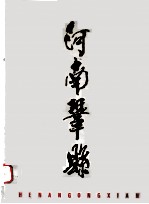 河南鞏縣
HENANGONGXIAN